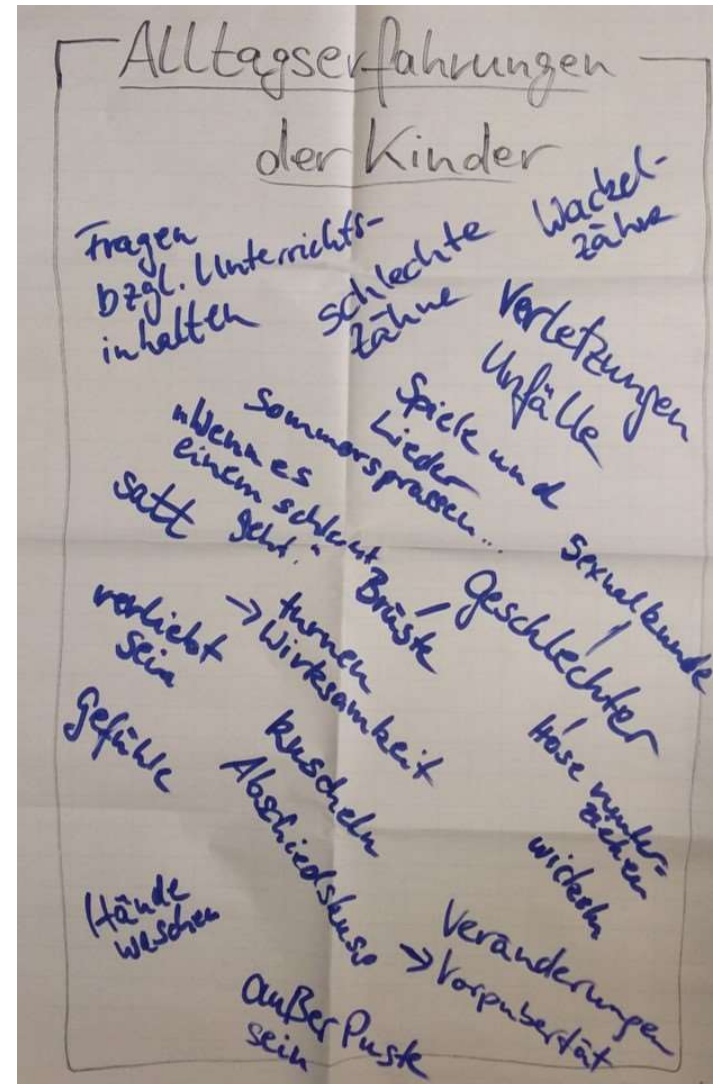 Alltagserfahrungen
der Kinder
Fragen
bzgl. Unterrichts-
inhalten
schlechte
Zähne
Wackel-
zähne
Verletzungen
Unfälle
Spiele und
Lieder
Sommersprossen...
"Wenn es
einem schlecht
geht."
satt
Sexualkunde
Geschlechter
Brüste
turnen
→ Wirksamkeit
verliebt
sein
Gefühle
kuscheln
Abschiedskuss
Hose runter-
ziehen
wickeln
Hände
waschen
Veränderungen
→ Vorpubertät
außer Puste
sein